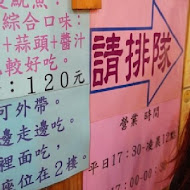 魷魚
綜合口味:
+蒜頭+醬汁
較好吃。
:120元
可外帶。
邊走邊吃。
裡面吃,
座位在2樓。
請排隊
營業 時間
平日17:30-凌晨12
17:00-00: